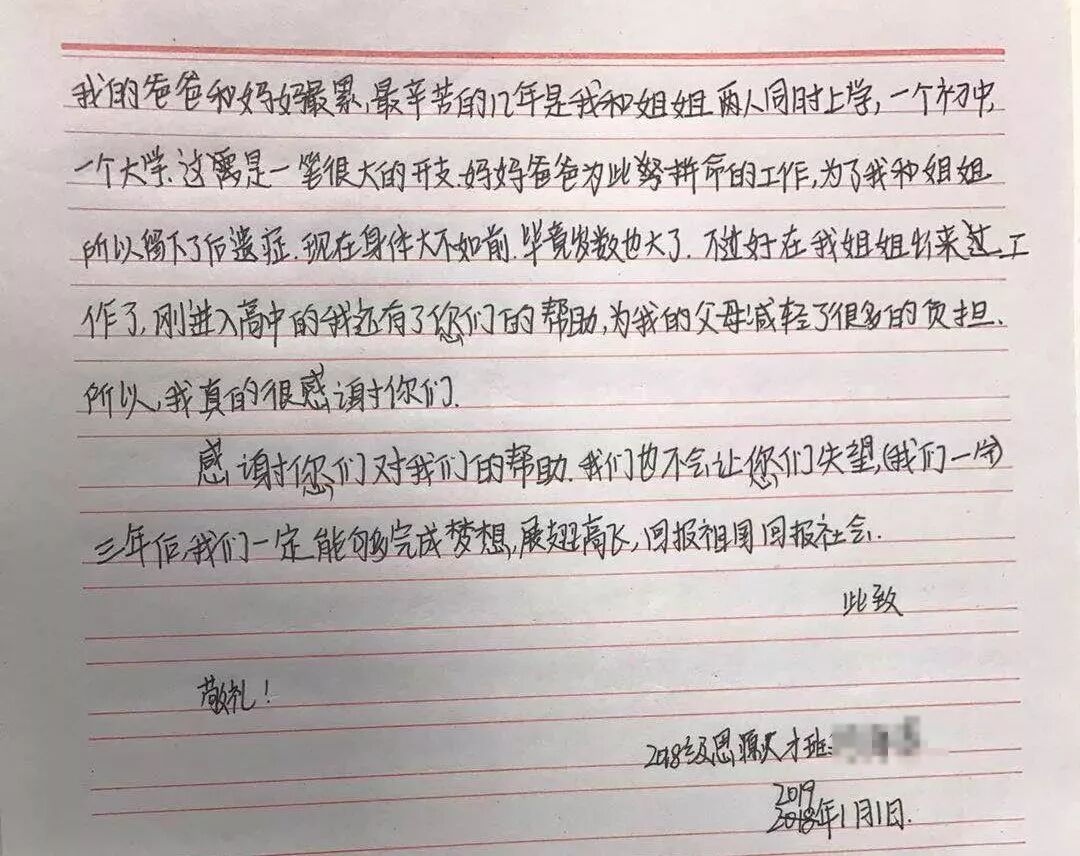 我的爸爸和妈妈最累,最辛苦的几年是我和姐姐两人同时上学,一个初中,
一个大学.这需是一笔很大的开支.妈妈爸爸为此努拼命的工作,为了我和姐姐
所以留下了后遗症.现在身体大不如前.毕竟岁数也大了.不过好在我姐姐出来过工
作了,刚进入高中的我还有了您们的帮助,为我的父母减轻了很多的负担.
所以,我真的很感谢你们.
感谢您们对我们的帮助.我们也不会让您们失望,(我们一学)
三年后,我们一定能够完成梦想,展翅高飞,回报祖国回报社会.
此致
敬礼!
2018级思源英才班:
2019
2018年1月1日.